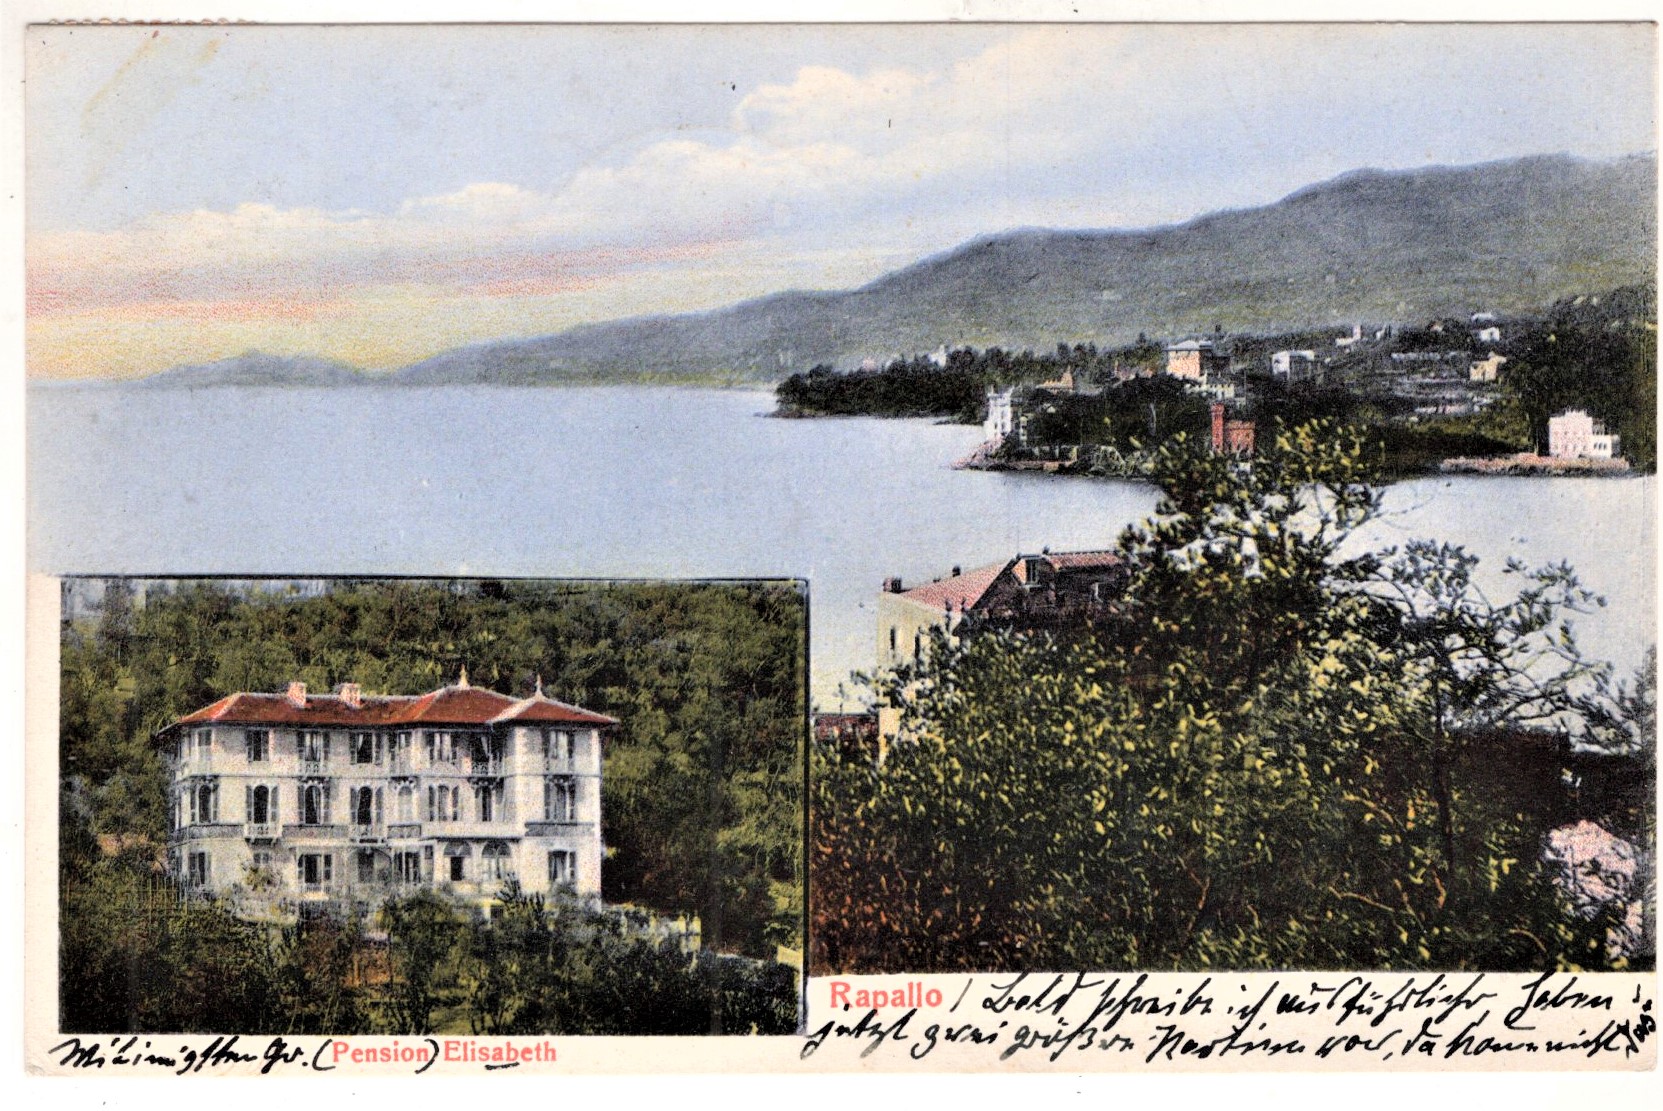 Rapallo / Bald schreibe ich ausführlicher, haben
jetzt zwei größere Partien vor, da kommt nicht
Mit innigsten Gr. (Pension) Elisabeth